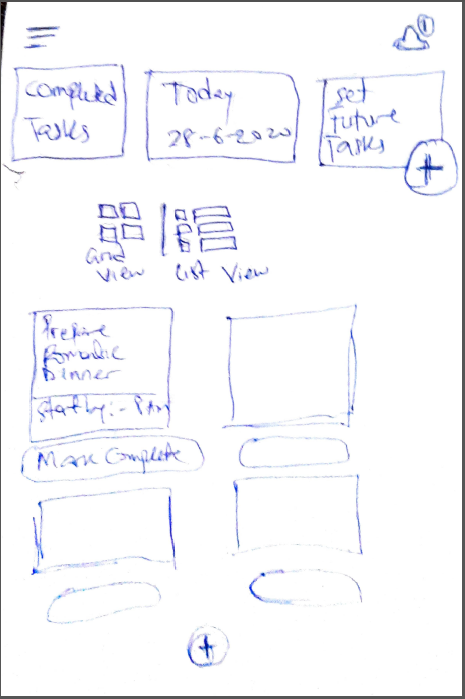 1
Completed
Tasks
Today
28-6-2020
Set
Future
Tasks
+
Grid
View
List View
Prepare
Romantic
Dinner
Start by:- 8 PM
Mark Complete
+